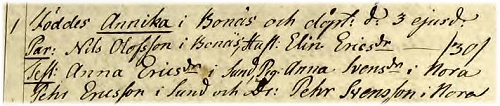 1 Föddes Annika i Bonäs och döpt: d: 3 ejusd:
Par: Nils Olofsson i Bonäs, Hust: Elin Ericsdr — /30/
Test: Anna Ericsdr i Sund, Pig: Anna Svensdr i Nora
Pehr Ericsson i Sund och Dr: Pehr Svensson i Nora